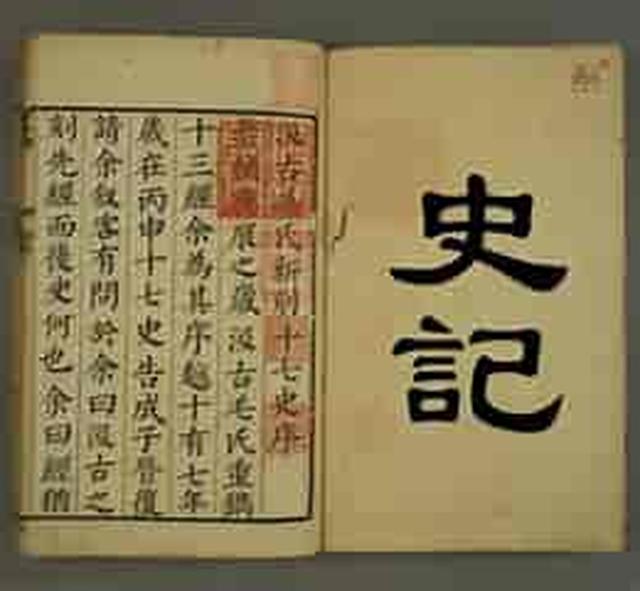 史記
汲古毛氏新刻十七史序
崇禎庚辰之歲汲古毛氏重鐫
十三經余為其序越十有七年
歲在丙申十七史告成子晉復
請余敘客有問於余曰汲古之
刻先經而後史何也余曰經猶